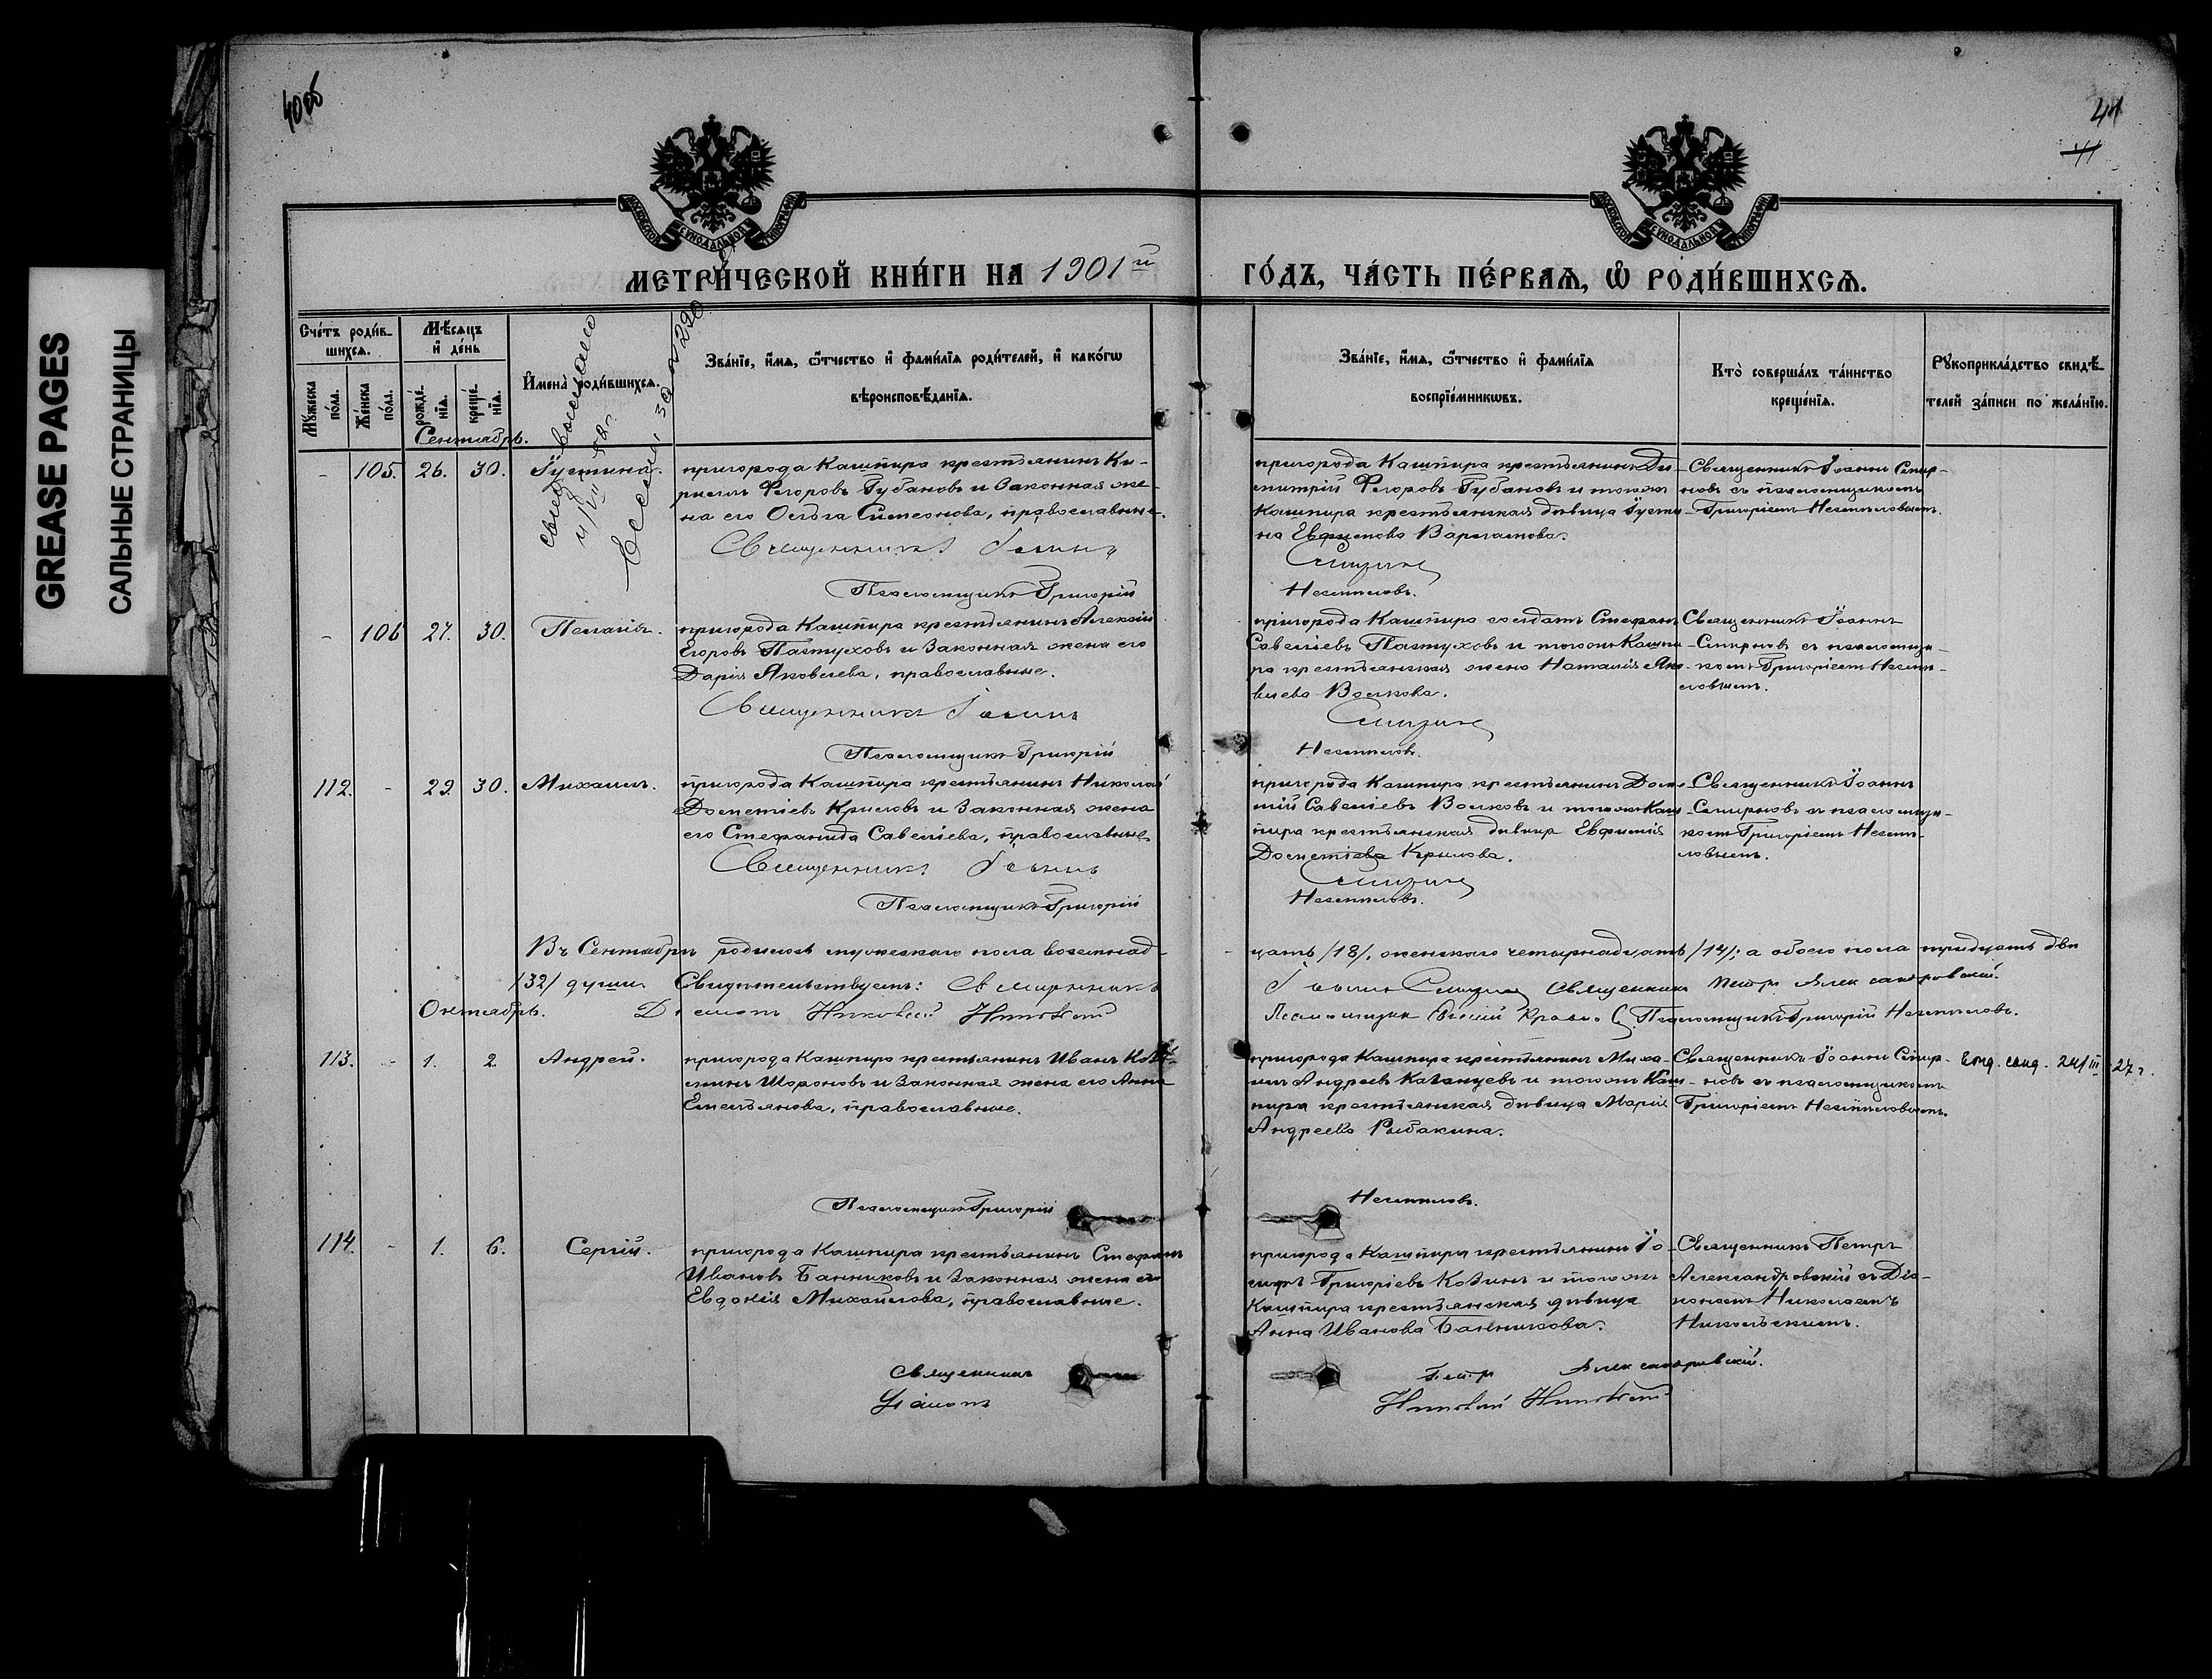 GREASE PAGES
САЛЬНЫЕ СТРАНИЦЫ
40об
41
41
МОСКОВСКОЙ СѴНОДАЛЬНОЙ ТИПОГРАФІИ
МОСКОВСКОЙ СѴНОДАЛЬНОЙ ТИПОГРАФІИ
МЕТРИ́ЧЕСКОЙ КНИ́ГИ НА 1901й
ГО́ДЪ, ЧА́СТЬ ПЕ́РВАѦ, Ѡ҆ РОДИ́ВШИХСѦ.
Сче́тъ роди́в-
шихсѧ.
Мѣ́сѧцъ
и҆ де́нь
Мꙋ́жеска
по́ла.
Же́нска
по́ла.
рожде́-
нїѧ.
креще́-
нїѧ.
И҆мена̀ роди́вшихсѧ.
Зва́нїе, и҆́мѧ, ѻ҆́тчество и҆ фами́лїѧ роди́телей, и҆ како́гѡ
вѣроисповѣ́данїѧ.
Зва́нїе, и҆́мѧ, ѻ҆́тчество и҆ фами́лїѧ
воспрїе́мникѡвъ.
Кто̀ соверша́лъ та́инство
креще́нїѧ.
Рꙋкоприкла́дство свидѣ́-
телей за́писи по жела́нїю.
Сентябрь.
- 105. 26. 30. Іустина.
пригорода Кашпира крестьянинъ Ки-
риллъ Ѳеоровъ Губановъ и законная же-
на его Ольга Симеонова, православные.
Священникъ Іоаннъ
Псаломщикъ Григорій
пригорода Кашпира крестьянинъ Ди-
митрій Ѳеоровъ Губановъ и тогожъ
Кашпира крестьянская дѣвица Іусти-
на Евфимова Варламова.
Смирнов
Несмѣловъ.
Священникъ Іоаннъ Смир-
новъ съ псаломщикомъ
Григоріемъ Несмѣловымъ.
- 106 27. 30. Пелагія.
пригорода Кашпира крестьянинъ Алексій
Егоровъ Пастуховъ и законная жена его
Дарія Яковлева, православные.
Священникъ Іоаннъ
Псаломщикъ Григорій
пригорода Кашпира солдатъ Стефанъ
Савеліевъ Пастуховъ и тогожъ Кашпи-
ра крестьянская жена Наталія Яко-
влева Волкова.
Смирнов
Несмѣловъ.
Священникъ Іоаннъ
Смирновъ съ псаломщи-
комъ Григоріемъ Несмѣ-
ловымъ.
112. - 29. 30. Михаилъ.
пригорода Кашпира крестьянинъ Николай
Дометіевъ Крыловъ и законная жена
его Стефанида Савеліева, православные
Священникъ Іоаннъ
Псаломщикъ Григорій
пригорода Кашпира крестьянинъ Доме-
тій Савеліевъ Волковъ и тогожъ Каш-
пира крестьянская дѣвица Евфимія
Дометіева Крылова.
Смирнов
Несмѣловъ.
Священникъ Іоаннъ
Смирновъ съ псаломщи-
комъ Григоріемъ Несмѣ-
ловымъ.
Въ Сентябрѣ родилось мужескаго пола восемнад-
цать /18/, женскаго четырнадцать /14/; а обоего пола тридцать двѣ
/32/ души. Свидѣтельствуемъ: Священникъ
Іоаннъ Смирнов Священникъ Петръ Александровскій.
Октябрь. Діаконъ Николай Никольскій
Псаломщикъ Григорій Несмѣловъ.
113. - 1. 2. Андрей.
пригорода Кашпира крестьянинъ Иванъ Козь-
минъ Шароновъ и законная жена его Анна
Емельянова, православные.
Псаломщикъ Григорій
пригорода Кашпира крестьянинъ Миха-
илъ Андреевъ Казанцевъ и тогожъ Каш-
пира крестьянская дѣвица Марія
Андреева Рыбакина.
Несмѣловъ.
Священникъ Іоаннъ Смир-
новъ съ псаломщикомъ
Григоріемъ Несмѣловымъ.
24/III 27 г.
114. - 1. 6. Сергій.
пригорода Кашпира крестьянинъ Стефанъ
Ивановъ Банниковъ и законная жена его
Евдокія Михайлова, православные.
Священникъ
Діаконъ
пригорода Кашпира крестьянинъ Іо-
сифъ Григоріевъ Козинъ и тогожъ
Кашпира крестьянская дѣвица
Анна Иванова Банникова.
Петръ Александровскій.
Николай Никольскій
Священникъ Петръ
Александровскій съ Діа-
кономъ Николаемъ
Никольскимъ.